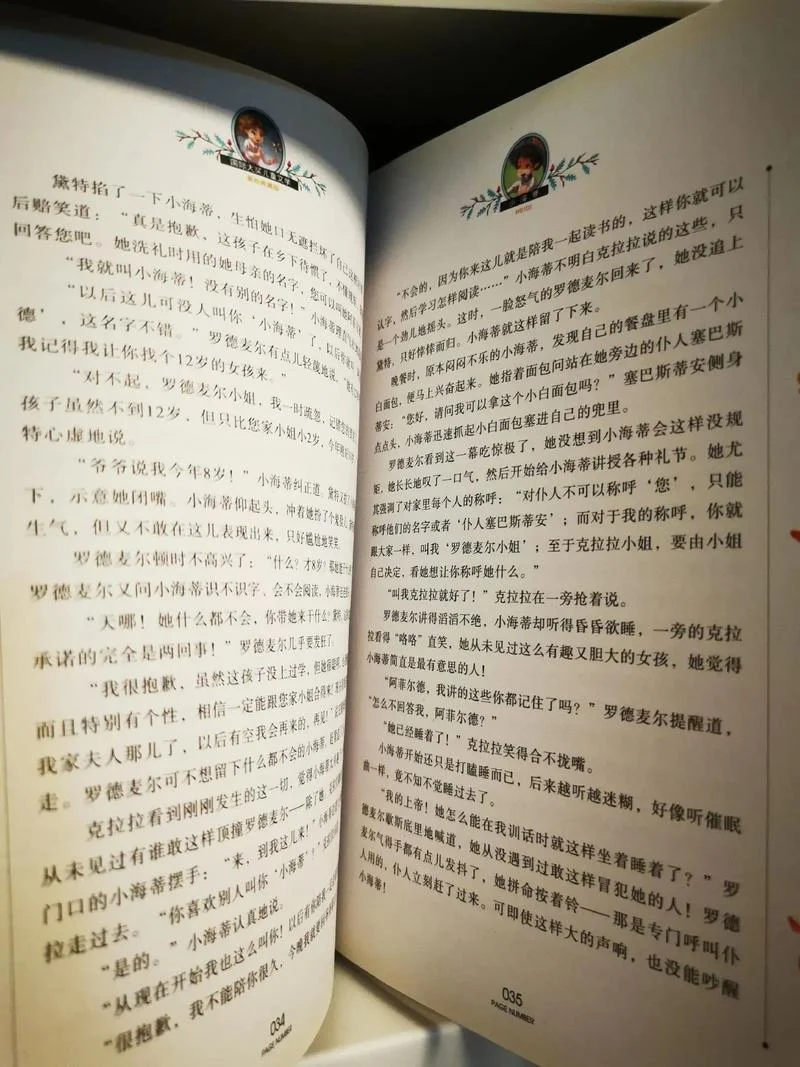 国际大奖儿童文学
黛特掐了一下小海蒂，生怕她口无遮拦坏了自己
后赔笑道：“真是抱歉，这孩子在乡下待惯了，不懂
回答您吧。她洗礼时用的她母亲的名字，您可以叫她
“我就叫小海蒂！没有别的名字！”小海蒂
“以后这儿可没人叫你‘小海蒂’了，以后
德’，这名字不错。”罗德麦尔有点儿轻蔑地说，
我记得我让你找个12岁的女孩来。”
“对不起，罗德麦尔小姐，我一时疏忽，记错
孩子虽然不到12岁，但只比您家小姐小2岁，今年
特心虚地说。
“爷爷说我今年8岁！”小海蒂纠正道。黛特又
下，示意她闭嘴。小海蒂仰起头，冲着她扮了个鬼脸。
生气，但又不敢在这儿表现出来，只好尴尬地笑笑。
罗德麦尔顿时不高兴了：“什么？才8岁？
罗德麦尔又问小海蒂识不识字、会不会阅读，小海蒂
“天哪！她什么都不会，你带她来干什么？黛特，
承诺的完全是两回事！”罗德麦尔几乎要发狂了。
“我很抱歉，虽然这孩子没上过学，但她很聪明，
而且特别有个性，相信一定能跟您家小姐合得来！
我家夫人那儿了，以后有空我会再来的，再见！”
走。罗德麦尔可不想留下什么都不会的小海蒂，
克拉拉看到刚刚发生的这一切，觉得小海蒂
从未见过有谁敢这样顶撞罗德麦尔——除了她。
门口的小海蒂摆手：“来，到我这儿来！”小海蒂
拉走过去。“你喜欢别人叫你‘小海蒂’？”
“是的。”小海蒂认真地说。
“从现在开始我也这么叫你！以后有你陪我
“很抱歉，我不能陪你很久，今晚我就要
034
PAGE NUMBER
小海蒂
HEIDI
“不会的，因为你来这儿就是陪我一起读书的，这样你就可以
认字，然后学习怎样阅读……”小海蒂不明白克拉拉说的这些，只
是一个劲儿地摇头。这时，一脸怒气的罗德麦尔回来了，她没追上
黛特，只好悻悻而归。小海蒂就这样留了下来。
晚餐时，原本闷闷不乐的小海蒂，发现自己的餐盘里有一个小
白面包，便马上兴奋起来。她指着面包问站在她旁边的仆人塞巴斯
蒂安：“您好，请问我可以拿这个小白面包吗？”塞巴斯蒂安侧身
点点头，小海蒂迅速抓起小白面包塞进自己的兜里。
罗德麦尔看到这一幕吃惊极了，她没想到小海蒂会这样没规
矩，她长长地叹了一口气，然后开始给小海蒂讲授各种礼节。她尤
其强调了对家里每个人的称呼：“对仆人不可以称呼‘您’，只能
称呼他们的名字或者‘仆人塞巴斯蒂安’；而对于我的称呼，你就
跟大家一样，叫我‘罗德麦尔小姐’；至于克拉拉小姐，要由小姐
自己决定，看她想让你称呼她什么。”
“叫我克拉拉就好了！”克拉拉在一旁抢着说。
罗德麦尔讲得滔滔不绝，小海蒂却听得昏昏欲睡，一旁的克拉
拉看得“咯咯”直笑，她从未见过这么有趣又胆大的女孩，她觉得
小海蒂简直是最有意思的人！
“阿菲尔德，我讲的这些你都记住了吗？”罗德麦尔提醒道，
“怎么不回答我，阿菲尔德？”
“她已经睡着了！”克拉拉笑得合不拢嘴。
小海蒂开始还只是打瞌睡而已，后来越听越迷糊，好像听催眠
曲一样，竟不知不觉睡过去了。
“我的上帝！她怎么能在我训话时就这样坐着睡着了？”罗
德麦尔歇斯底里地喊道，她从没遇到过敢这样冒犯她的人！罗德
麦尔气得手都有点儿发抖了，她拼命按着铃——那是专门呼叫仆
人用的，仆人立刻赶了过来。可即使这样大的声响，也没能吵醒
小海蒂！
035
PAGE NUMBER